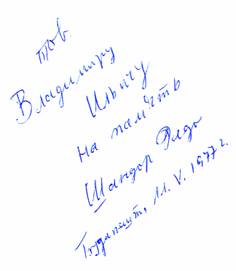 Тов.
Владимиру
Ильичу
на память
Шандор Радо
Будапешт, 11. V. 1977 г.